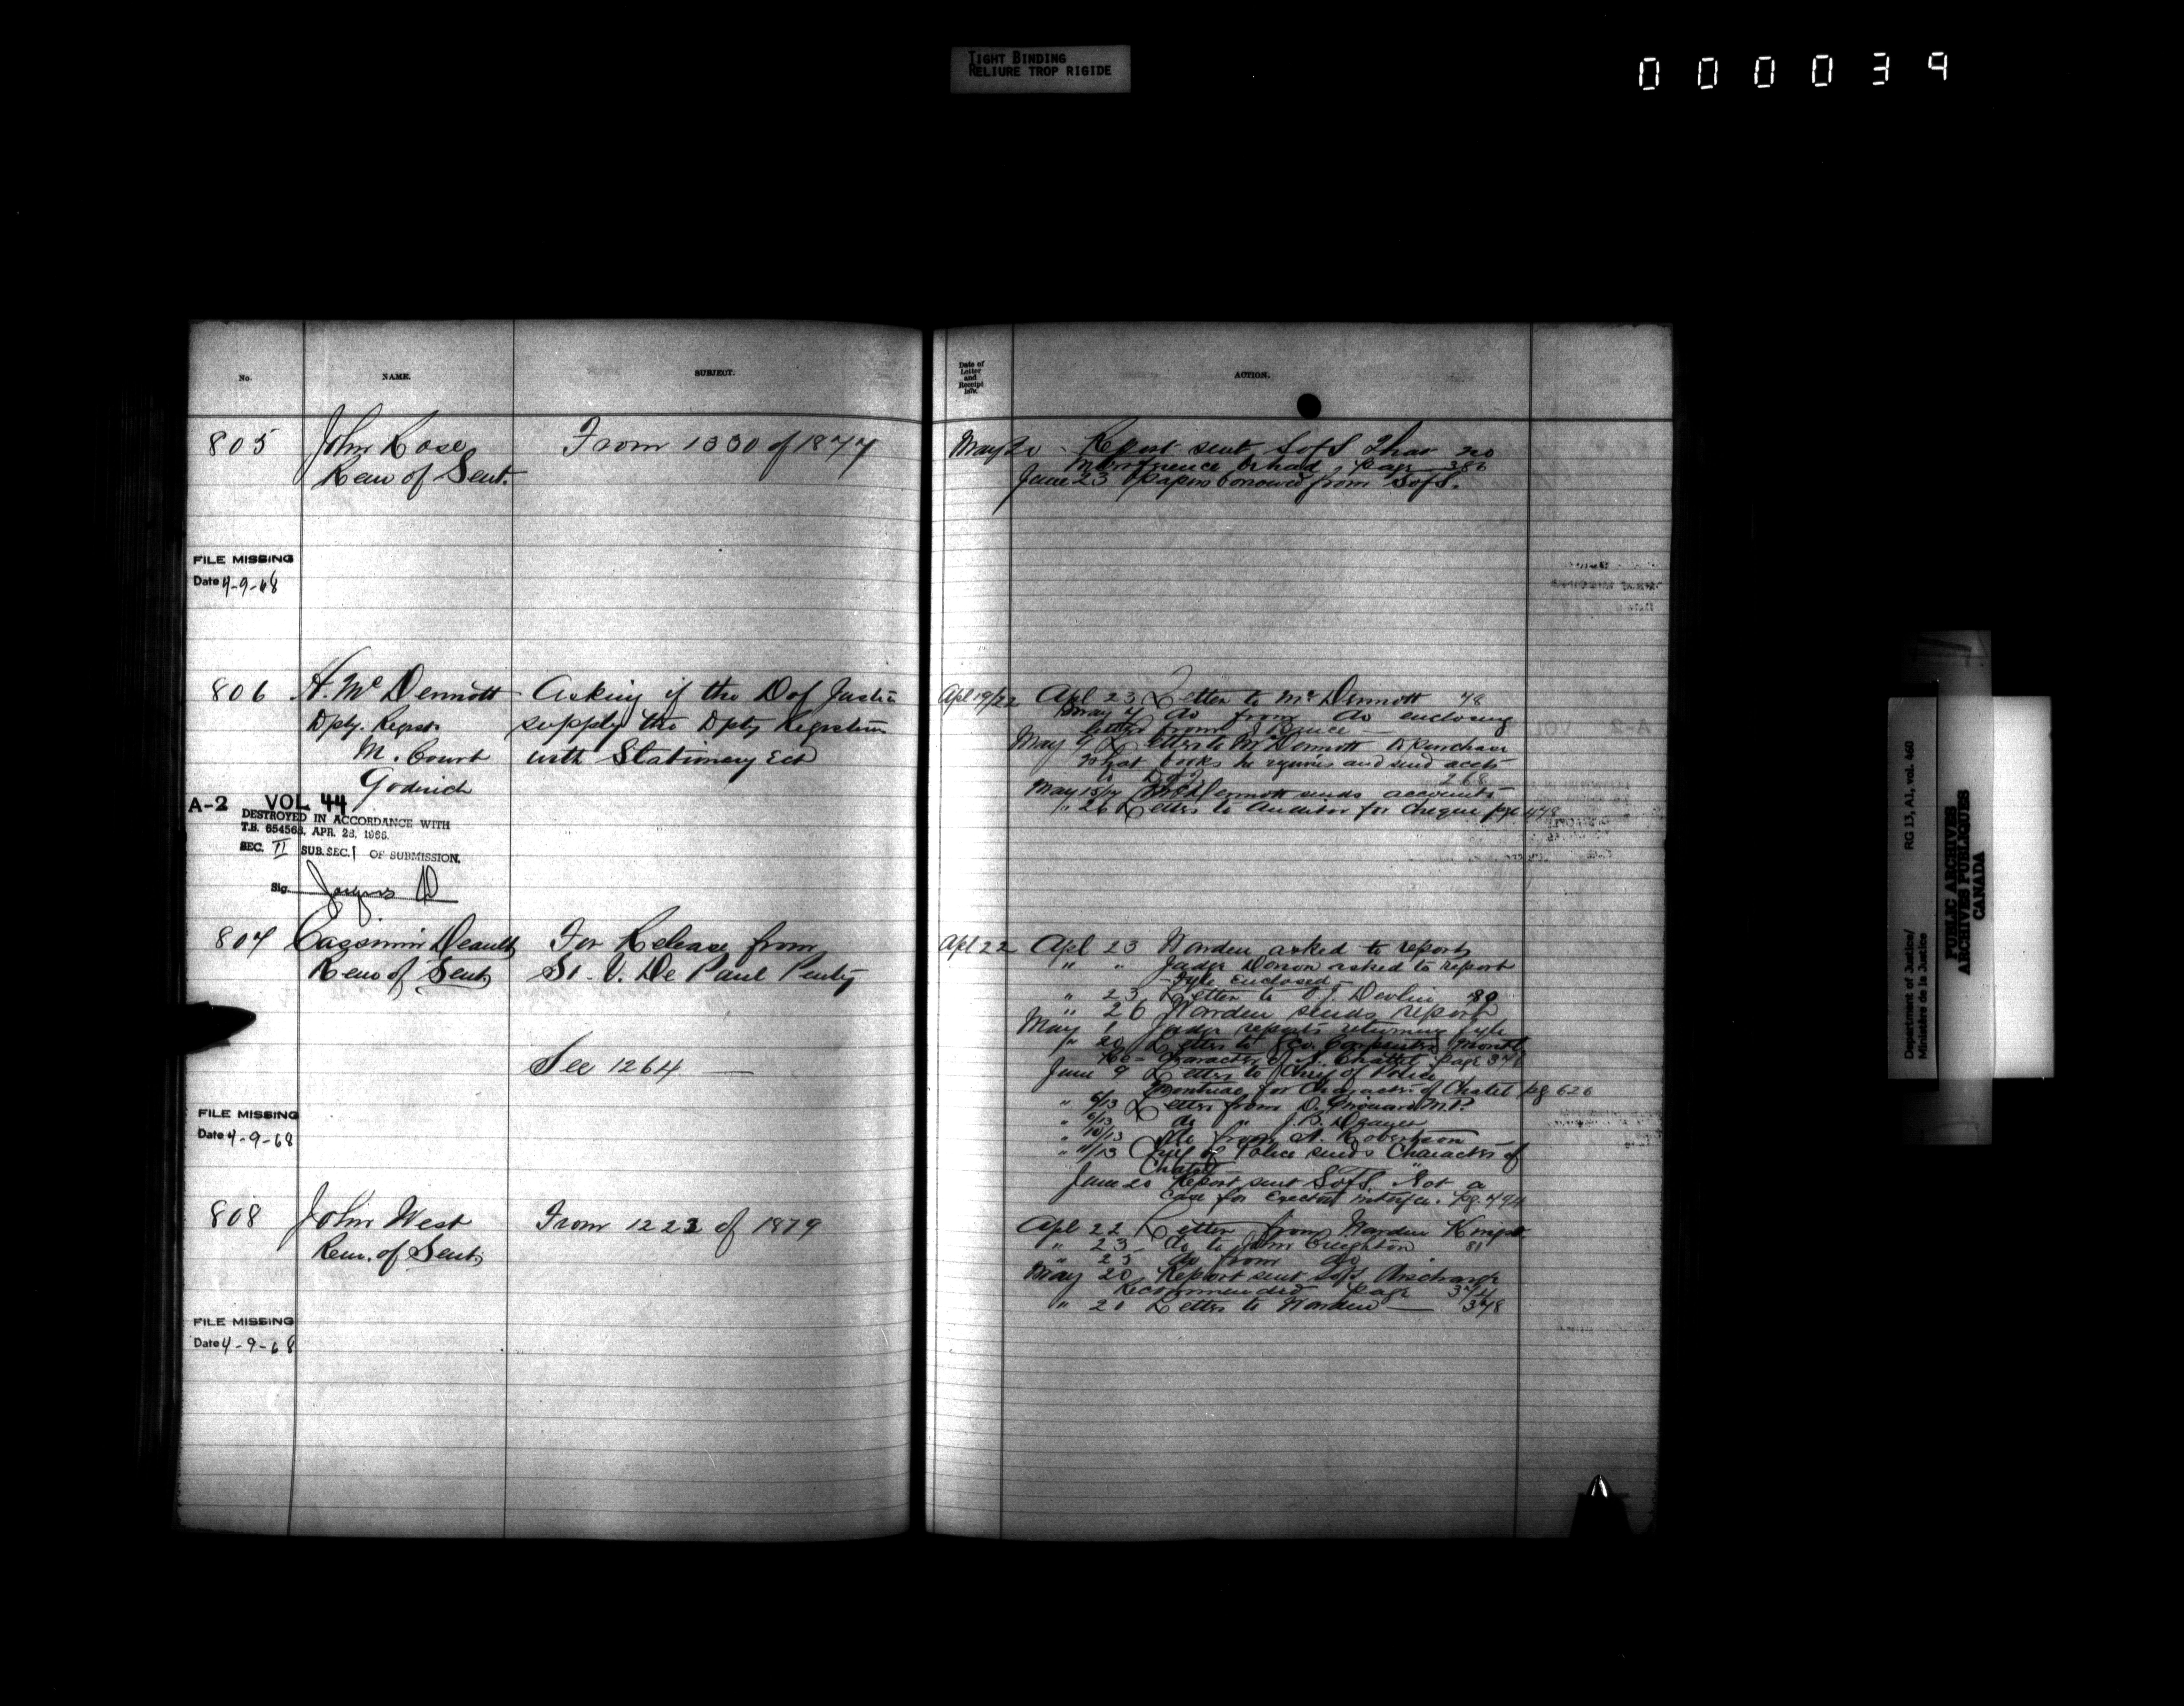 TIGHT BINDING
RELIURE TROP RIGIDE
000039
No.
NAME.
SUBJECT.
805
John Rose
Rem of Sent.
From 1330 of 1877
FILE MISSING
Date 4-9-68
806
A. McDermott
Dpty. Regist
M. Court
Goderich
Asking if the D of Justice
supply the Dpty Registrar
with Stationery Ect
A-2 VOL 44
DESTROYED IN ACCORDANCE WITH
T.B. 654568, APR. 28, 1966.
SEC. II SUB.SEC. 1 OF SUBMISSION.
Sig.
807
Cassimir Deault
Rem of Sent
For Release from
St. V. De Paul Penty
See 1264 —
FILE MISSING
Date 4-9-68
808
John West
Rem. of Sent.
From 1223 of 1879
FILE MISSING
Date 4-9-68
Date of
Letter
and
Receipt
ACTION.
May 20 - Report sent S of S That no
interference be had, page 386
June 23 Papers borrowed from S of S.
Apl 19/22 Apl 23 Letter to McDermott 48
May 7 do from do enclosing
letter from J Bruce —
May 9 Letter to McDermott to purchase
what books he requires and send accts
to 268
May 15/17 McDermott sends accounts
" 26 Letter to Auditor for cheque pge 448
Apl 22 Apl 23 Warden asked to report
" " Judge Dorion asked to report
- Fyle Enclosed -
" 23 Letter to Devlin 80
" 26 Warden sends report
May 1 Judge reports returning fyle
" 20 Letter to Carpenter Montl
Character of Chattel page 371
June 9 Letter to Chief of Police
Montreal for Character of Chatel pg 626
" 6/13 Letter from D. Girouard M.P.
" 6/13 do "
" 10/13 do from A. Robertson
" 11/13 Chief of Police sends Character of
Chatel
June 20 Report sent S of S. Not a
case for Execut interfer. pg. 494
Apl 22 Letter from Warden Kingst.
" 23 do to John Creighton 81
" 25 do from do
May 20 Report sent S of S, Discharge
Recommended page 374
" 20 Letter to Warden — 378
Department of Justice/
Ministère de la Justice
RG 13, A1, vol. 460
PUBLIC ARCHIVES
ARCHIVES PUBLIQUES
CANADA